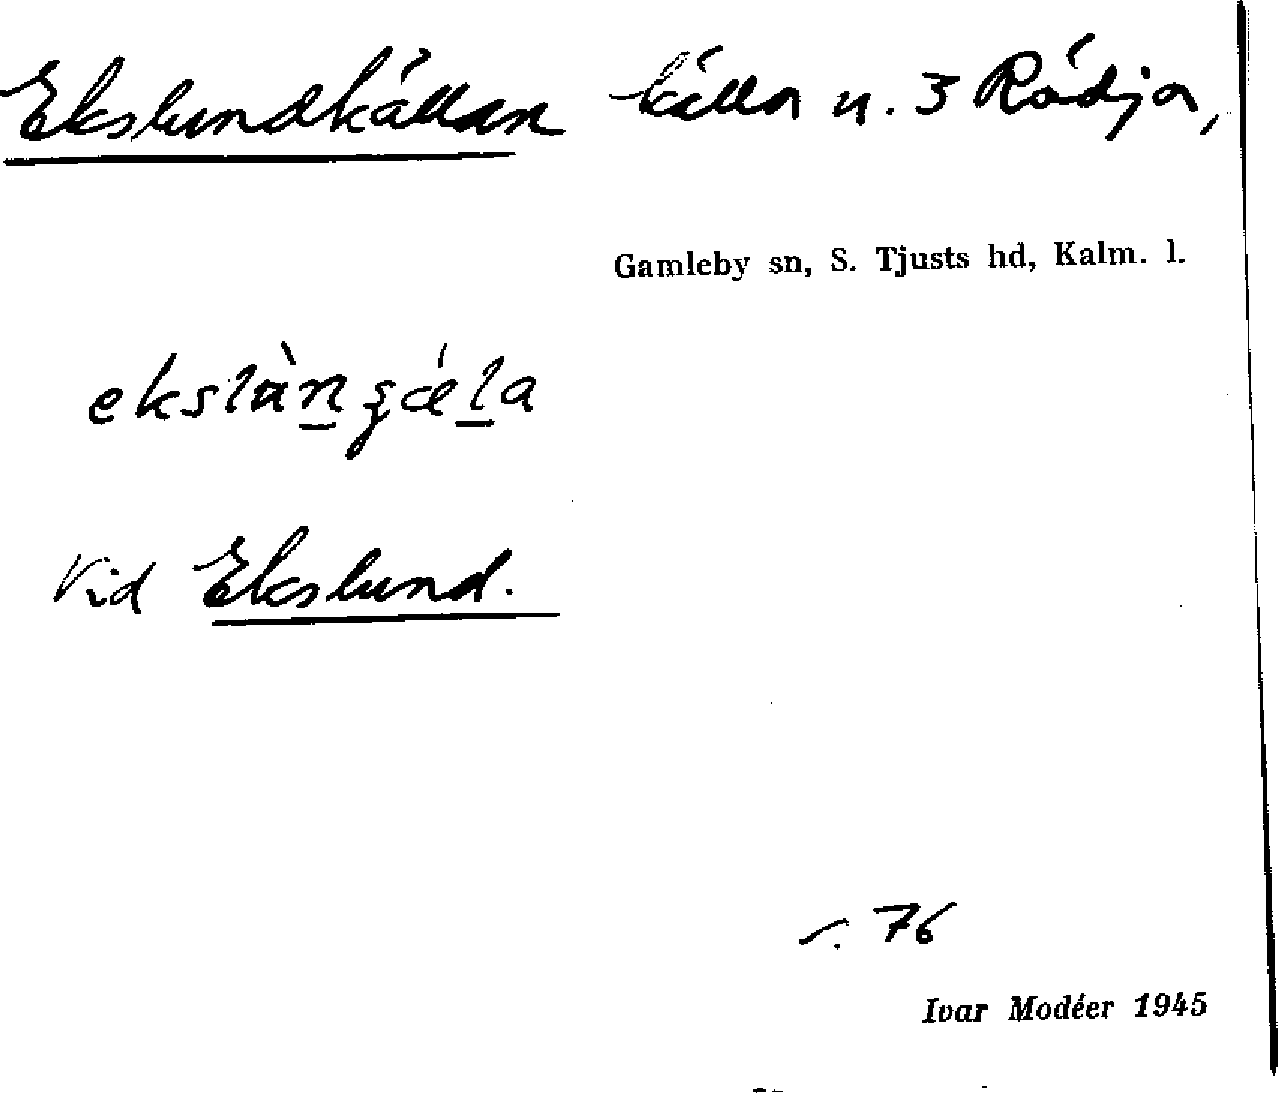 Ekslundkällan källa n. 3 Rådja,
Gamleby sn, S. Tjusts hd, Kalm. l.
Vid Ekslund.
s. 76
Ivar Modéer 1945